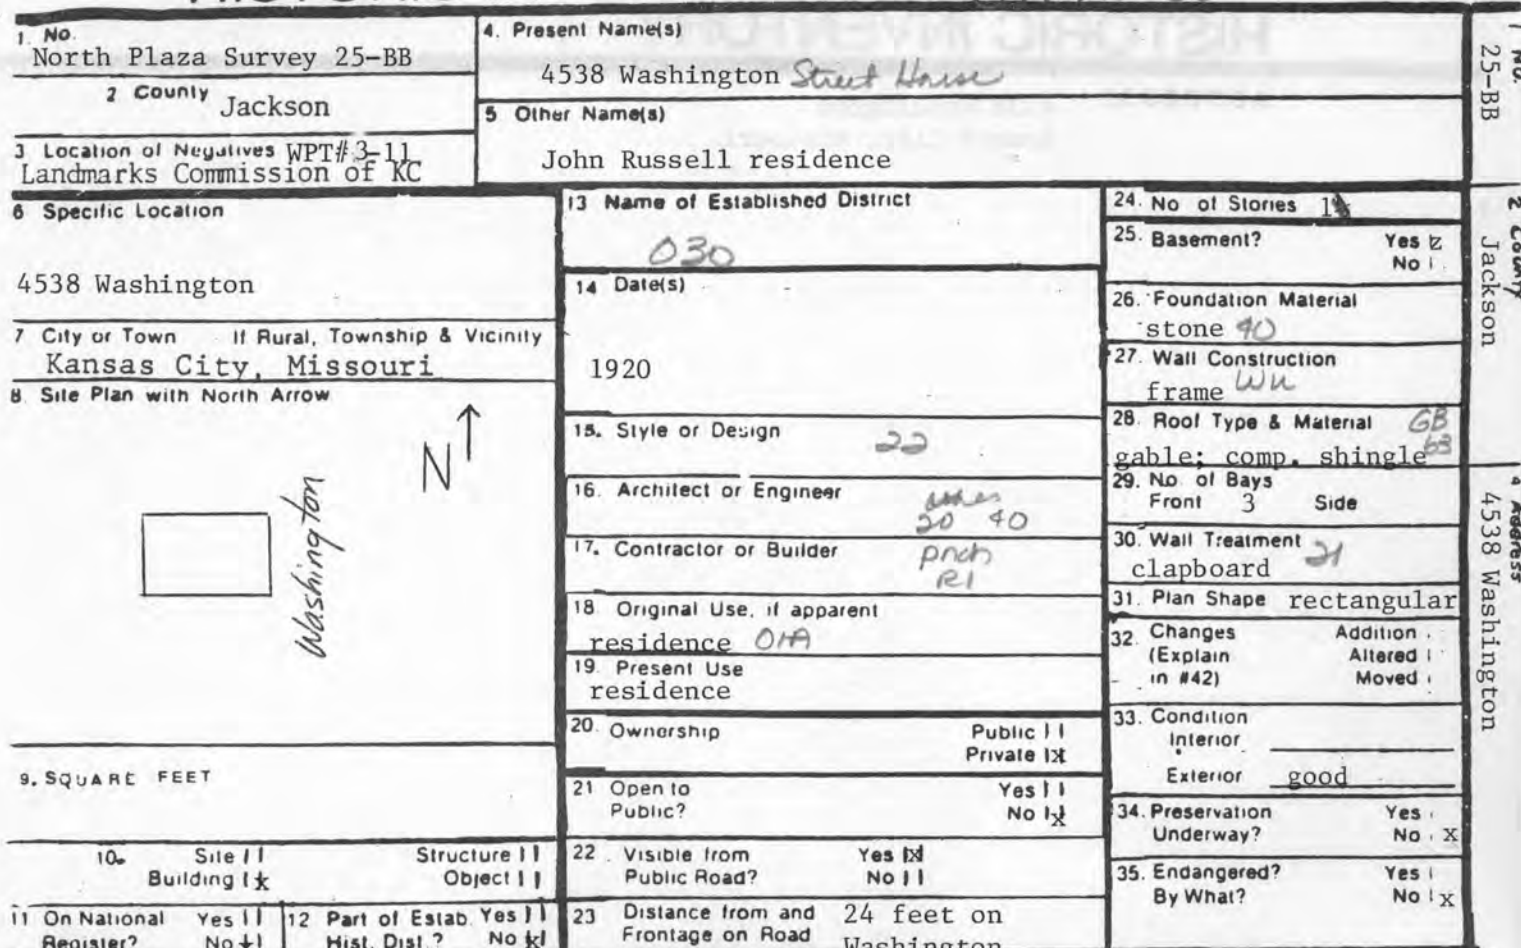 1. No.
North Plaza Survey 25-BB
2 County Jackson
3 Location of Negatives WPT#3-11
Landmarks Commission of KC
4. Present Name(s)
4538 Washington Street House
5 Other Name(s)
John Russell residence
6 Specific Location
4538 Washington
7 City or Town If Rural, Township & Vicinity
Kansas City, Missouri
8. Site Plan with North Arrow
N
Washington
9. SQUARE FEET
10. Site Structure
Building x Object
11 On National Yes
Register? No
12 Part of Estab. Yes
Hist. Dist.? No x
13 Name of Established District
030
14 Date(s)
1920
15. Style or Design 22
16. Architect or Engineer
20 40
17. Contractor or Builder prch
R1
18. Original Use, if apparent
residence 01A
19. Present Use
residence
20. Ownership Public
Private x
21 Open to Yes
Public? No x
22. Visible from Yes x
Public Road? No
23 Distance from and 24 feet on
Frontage on Road Washington
24. No of Stories 1
25. Basement? Yes
No
26. Foundation Material
stone 40
27. Wall Construction
frame
28. Roof Type & Material GB
gable; comp. shingle 63
29. No. of Bays
Front 3 Side
30. Wall Treatment 21
clapboard
31. Plan Shape rectangular
32. Changes Addition
(Explain Altered
in #42) Moved
33. Condition
Interior
Exterior good
34. Preservation Yes
Underway? No x
35. Endangered? Yes
By What? No x
1 No.
25-BB
2 County
Jackson
4 Address
4538 Washington